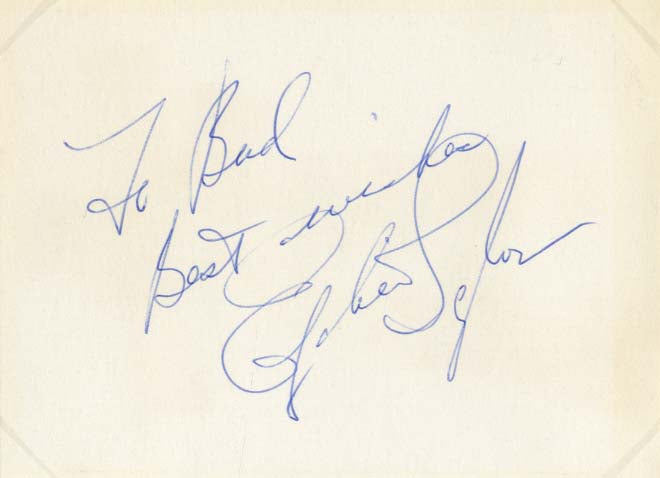 To Bud
Best wishes
Taylor